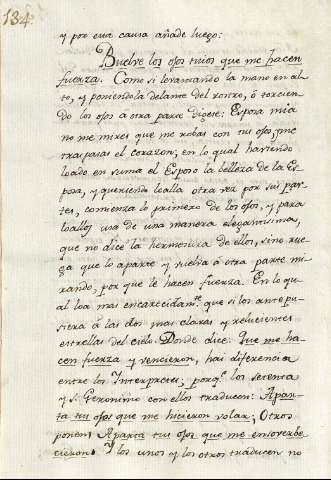 134.
y por esta causa añade luego:
Buelve los ojos tuios que me hacen
fuerza. Como si levantando la mano en al
to, y poniendola delante del rostro, ò torcien
do los ojos a otra parte digese: Esposa mia
no me mires que me robas con tus ojos, y me
traspasas el corazon; en lo qual haviendo
loado en suma el Esposo la belleza de la Es
posa, y queriendo loalla otra vez por sus par
tes, comienza lo primero de los ojos, y para
loallos usa de una manera elegantisima,
que no dice la hermosura de ellos, sino rue
ga que lo aparte y vuelva à otra parte mi
rando, por que le hacen fuerza. En lo qu
al loa mas encarecidam.te que si los antepu
siera à las dos mas claras y relucientes
estrellas del cielo. Donde dice: Que me ha
cen fuerza y vencieron, hai diferencia
entre los Interpretes; porq.e los setenta
y S. Geronimo con ellos traducen: Apar
ta tus ojos que me hicieron volar; Otros
ponen: Aparta tus ojos que me ensoverbe
cieron. Y los unos y los otros traducen no